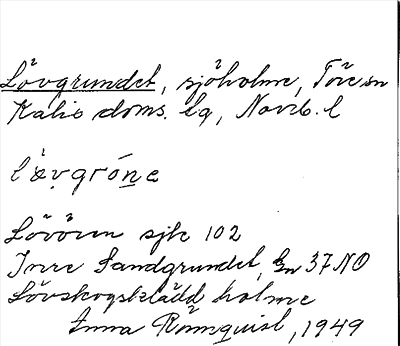 Lövgrundet, sjöholme, Töre sn
Kalix doms. lg, Norrb. l
lǝ̀vgróne
Lövören sjk 102
Inre Sandgrundet, Gsn 37 NO
Lövskogsklädd holme
Anna Rönnquist, 1949